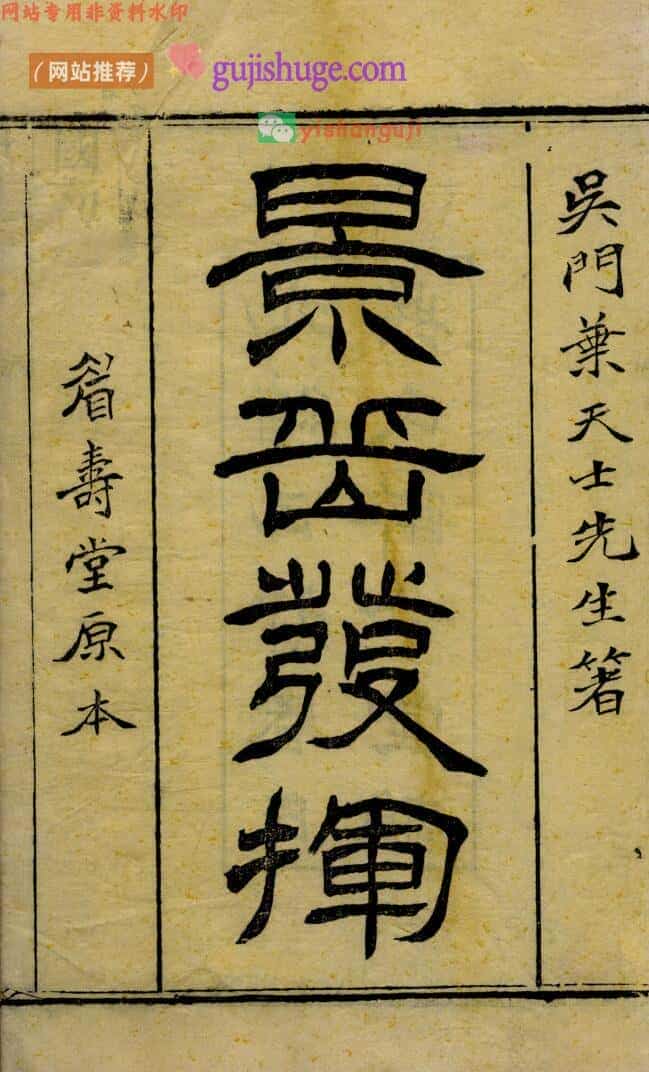 网站专用非资料水印
（网站推荐）
gujishuge.com
yishanguji
吳門葉天士先生箸
景岳發揮
睂壽堂原本